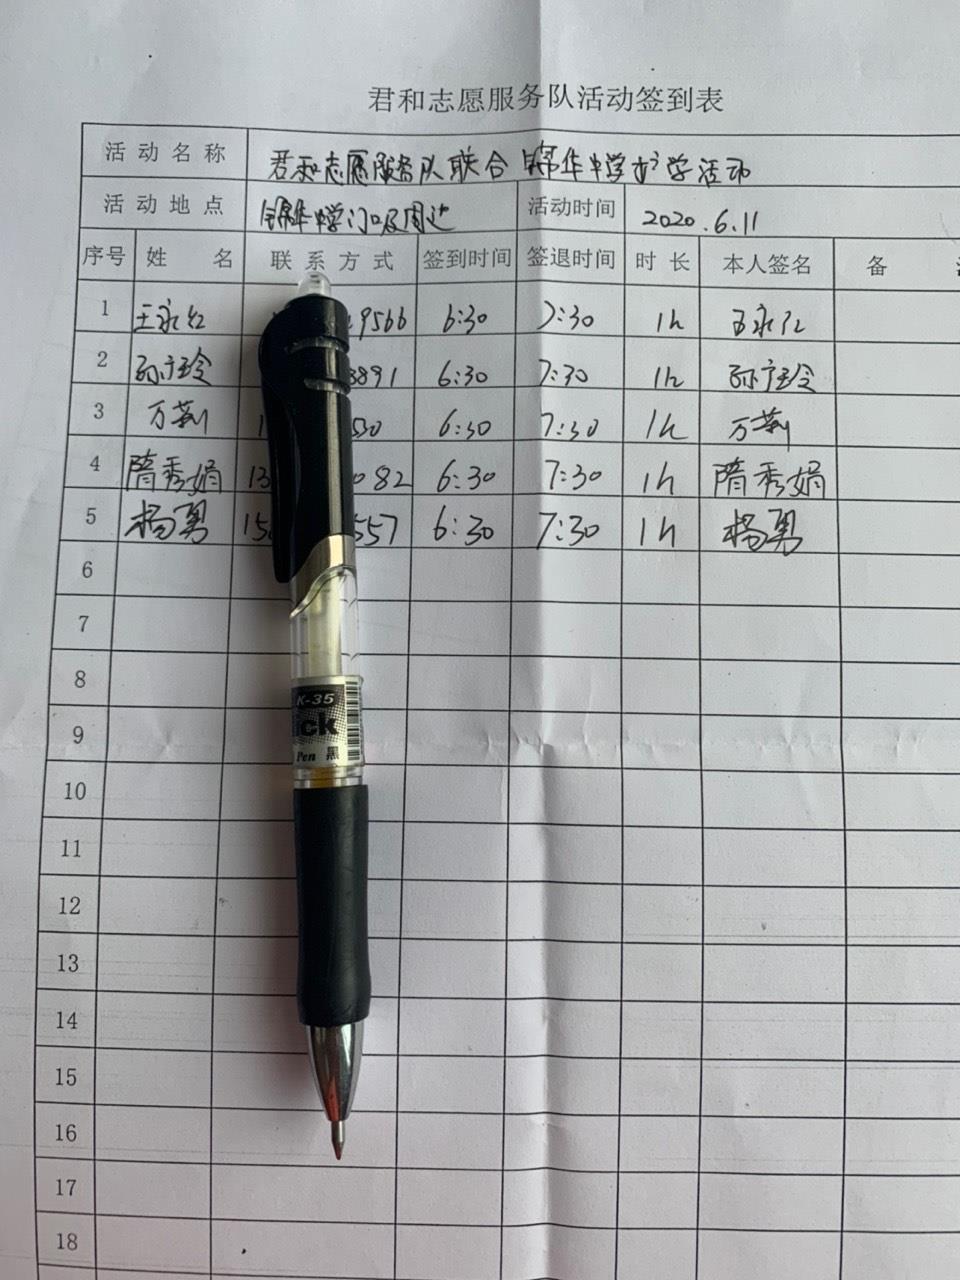 君和志愿服务队活动签到表
活动名称 君和志愿服务队联合锦华中学护学活动
活动地点 锦华中学门口及周边 活动时间 2020.6.11
序号 姓名 联系方式 签到时间 签退时间 时长 本人签名 备
1 王永红 9566 6:30 7:30 1h 王永红
2 孙玲 8891 6:30 7:30 1h 孙玲
3 万莉 1 530 6:30 7:30 1h 万莉
4 隋秀娟 13 082 6:30 7:30 1h 隋秀娟
5 杨勇 15 557 6:30 7:30 1h 杨勇
6
7
8
9
10
11
12
13
14
15
16
17
18
K-35
ick
Pen 黑